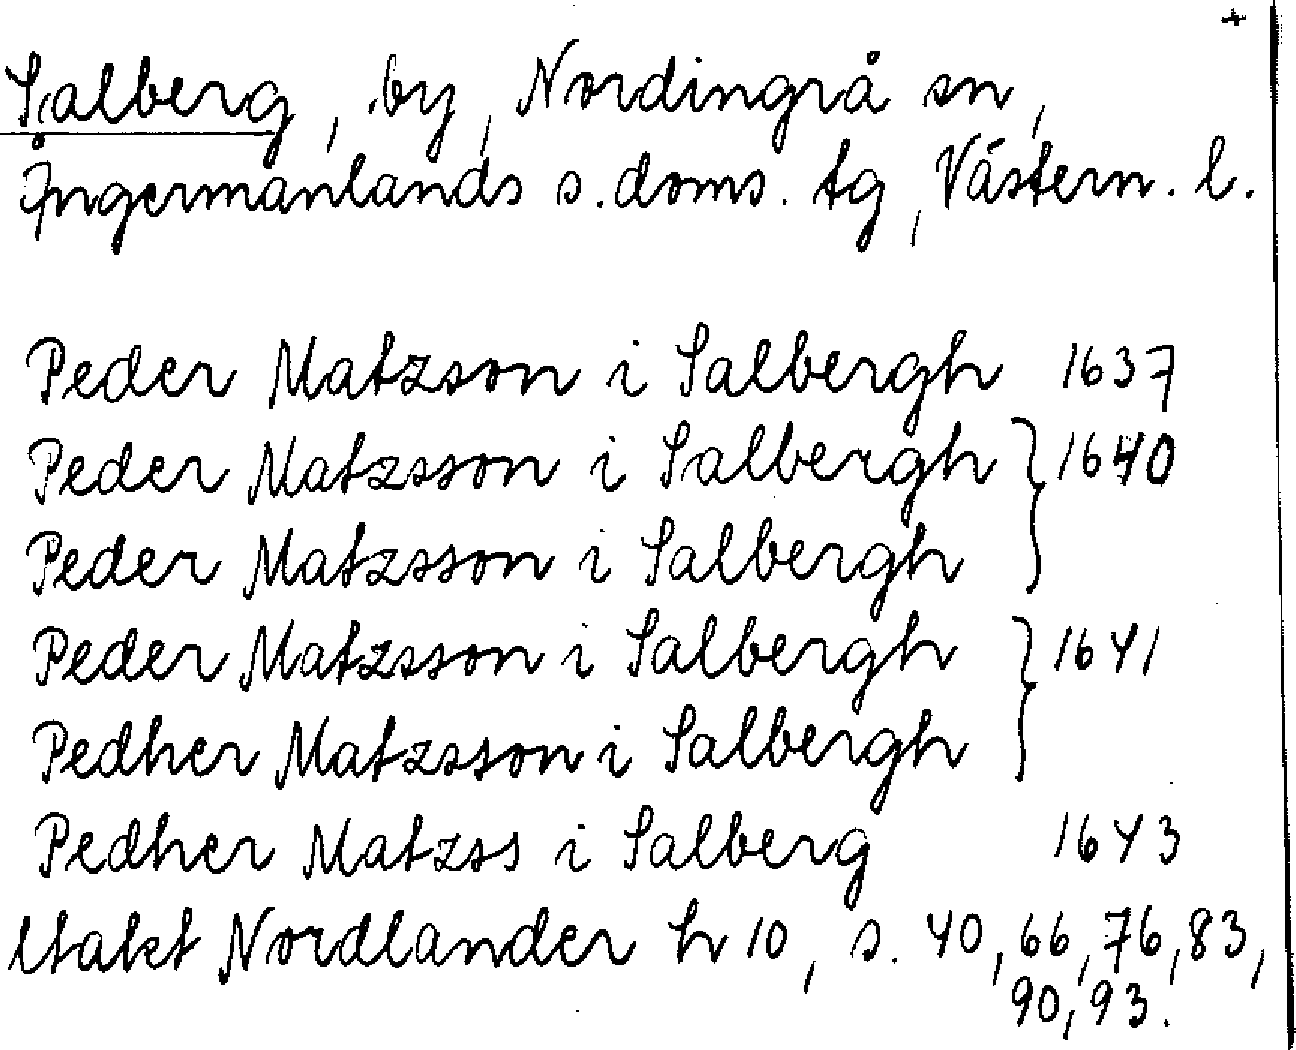 +
Salberg, by, Nordingrå sn,
Ångermanlands s. doms. tg, Västern. l.
Peder Matzson i Salbergh 1637
Peder Matzsson i Salbergh } 1640
Peder Matzsson i Salbergh
Peder Matzsson i Salbergh } 1641
Pedher Matzsson i Salbergh
Pedher Matzss i Salberg 1643
Utakt Nordlander h 10, s. 40, 66, 76, 83,
90, 93.